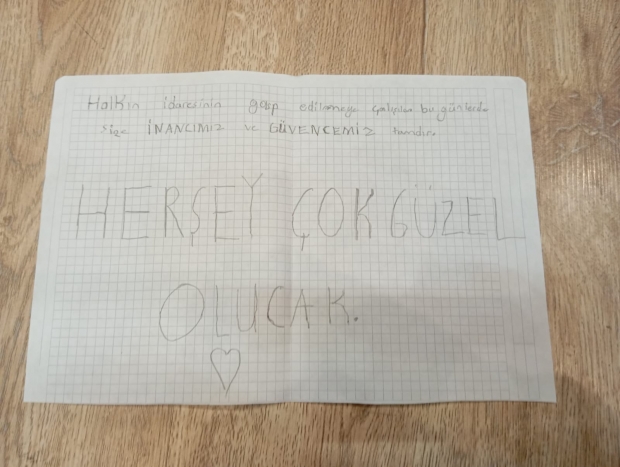 Halkın idaresinin gasp edilmeye çalışılan bu günlerde
size İNANCIMIZ ve GÜVENCEMİZ tamdır.
HERŞEY ÇOK GÜZEL
OLUCAK.